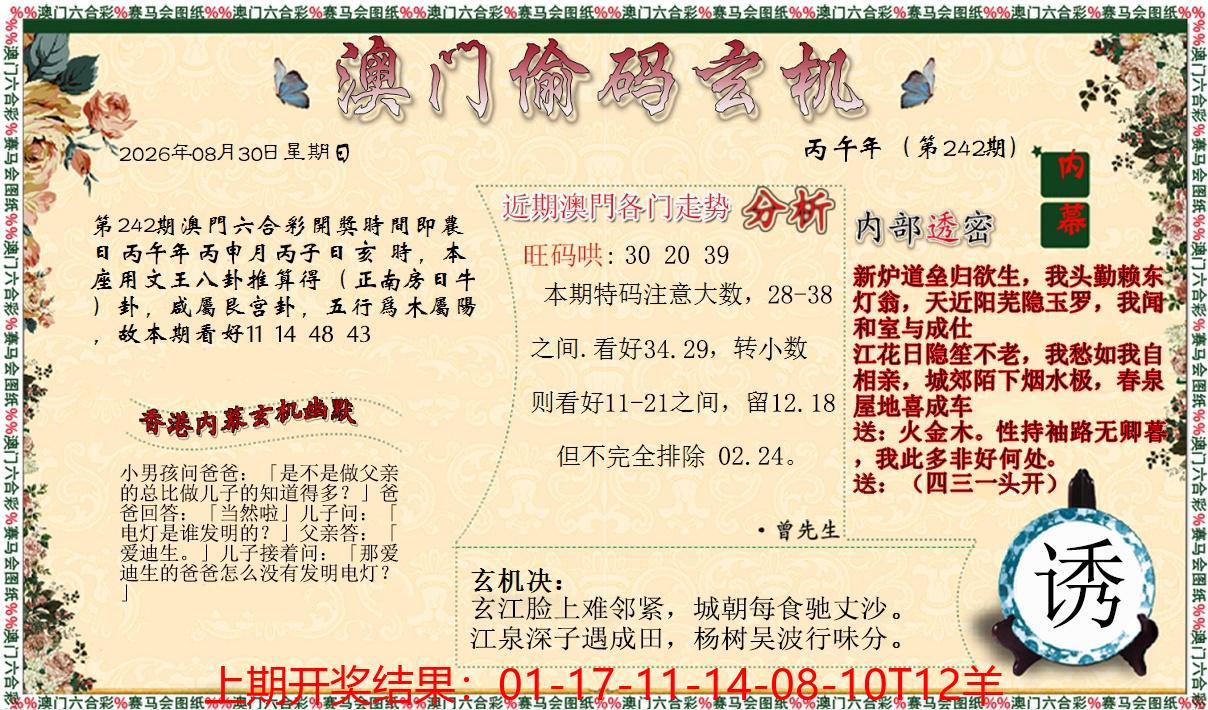 %%澳门六合彩%赛马会图纸%%澳门六合彩%赛马会图纸%%澳门六合彩%赛马会图纸%%澳门六合彩%赛马会图纸%%澳门六合彩%赛马会图纸%%澳门六合彩%赛马会图纸%%
澳门偷码玄机
2026年08月30日星期日
丙午年（第242期）
内
幕
第242期澳門六合彩開獎時間即農
日丙午年丙申月丙子日亥 時，本
座用文王八卦推算得（正南房日牛
）卦，咸屬艮宫卦，五行爲木屬陽
，故本期看好11 14 48 43
香港内幕玄机幽默
小男孩问爸爸：「是不是做父亲
的总比做儿子的知道得多？」爸
爸回答：「当然啦」儿子问：「
电灯是谁发明的？」父亲答：「
爱迪生。」儿子接着问：「那爱
迪生的爸爸怎么没有发明电灯？
」
近期澳門各门走势 分析
旺码哄: 30 20 39
本期特码注意大数，28-38
之间.看好34.29，转小数
则看好11-21之间，留12.18
但不完全排除 02.24。
·曾先生
内部透密
新炉道垒归欲生，我头勤赖东
灯翁，天近阳芜隐玉罗，我闻
和室与成仕
江花日隐笙不老，我愁如我自
相亲，城郊陌下烟水极，春泉
屋地喜成车
送：火金木。性持袖路无卿暮
，我此多非好何处。
送：（四三一头开）
诱
玄机决：
玄江脸上难邻紧，城朝每食驰丈沙。
江泉深子遇成田，杨树吴波行味分。
上期开奖结果：01-17-11-14-08-10T12羊